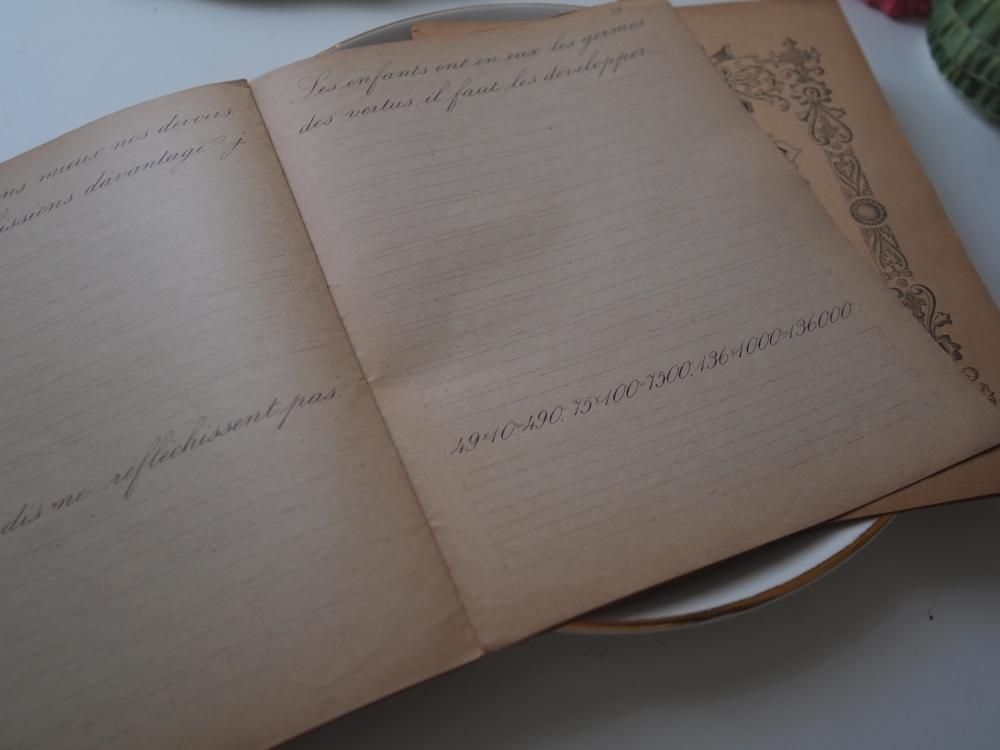 ns mieux nos devoirs,
issions davantage j.
dis ne réfléchissent pas.
Les enfants ont en eux les germes
des vertus, il faut les développer.
49×10=490, 75×100=7500, 136×1000=136000.